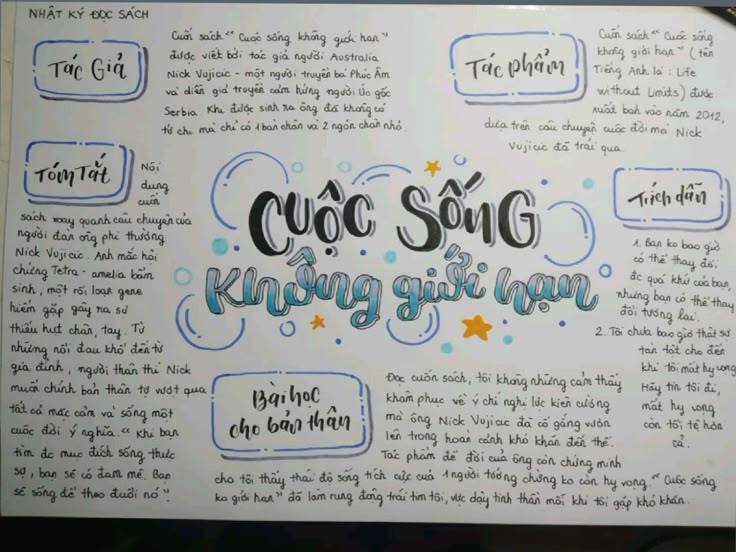 NHẬT KÝ ĐỌC SÁCH
Tác Giả
Cuốn sách "Cuộc sống không giới hạn"
được viết bởi tác giả người Australia
Nick Vujicic - một người truyền bá Phúc Âm
và diễn giả truyền cảm hứng người Úc gốc
Serbia. Khi được sinh ra ông đã không có
tứ chi mà chỉ có 1 bàn chân và 2 ngón chân nhỏ.
Tác phẩm
Cuốn sách "Cuộc sống
không giới hạn" (tên
Tiếng Anh là: Life
without Limits) được
xuất bản vào năm 2012,
dựa trên câu chuyện cuộc đời mà Nick
Vujicic đã trải qua.
Tóm Tắt
Nội
dung
cuốn
sách xoay quanh câu chuyện của
người đàn ông phi thường
Nick Vujicic. Anh mắc hội
chứng Tetra-amelia bẩm
sinh, một rối loạn gene
hiếm gặp gây ra sự
thiếu hụt chân, tay. Từ
những nỗi đau khổ đến từ
gia đình, người thân thì Nick
muốn chính bản thân tự vượt qua
tất cả mặc cảm và sống một
cuộc đời ý nghĩa. "Khi bạn
tìm đc mục đích sống thực
sự, bạn sẽ có đam mê. Bạn
sẽ sống để theo đuổi nó"
CUỘC SỐNG
Không giới hạn
Trích dẫn
1. Bạn ko bao giờ
có thể thay đổi
đc quá khứ của bạn,
nhưng bạn có thể thay
đổi tương lai.
2. Tôi chưa bao giờ thật sự
tàn tật cho đến
khi tôi mất hy vọng
Hãy tin tôi đi,
mất hy vọng
còn tồi tệ hơn
cả.
Bài học
cho bản thân
Đọc cuốn sách, tôi không những cảm thấy
khâm phục về ý chí nghị lực kiên cường
mà ông Nick Vujicic đã cố gắng vươn
lên trong hoàn cảnh khó khăn đến thế.
Tác phẩm để đời của ông còn chứng minh
cho tôi thấy thái độ sống tích cực của 1 người tưởng chừng ko còn hy vọng. "Cuộc sống
ko giới hạn" đã làm rung động trái tim tôi, vực dậy tinh thần mỗi khi tôi gặp khó khăn.